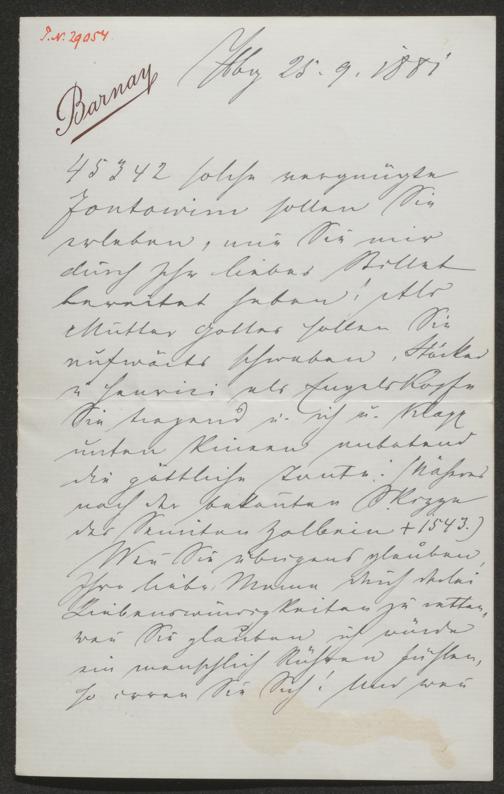 J. N. 29054
Barnay
Hbg 25. 9. 1881
45342 solche vergnügte
sollen Sie
erleben, wie Sie mir
durch Ihr liebes Billet
bereitet haben! Als
Mutter Gottes sollen Sie
aufwärts schweben, Stöcker
u Henrici als Engelsköpfe
Sie tragend u. ich u. Klapp
unten knieend anbetend
die göttliche Tante. (Näheres
nach der bekannten Skizze
des Semiten Holbein + 1543.)
Wenn Sie übrigens glauben,
Ihre liebe Mama durch derlei
Liebenswürdigkeiten zu retten,
wenn Sie glauben ich würde
ein menschlich Rühren fühlen,
so irren Sie Sich! Und wenn